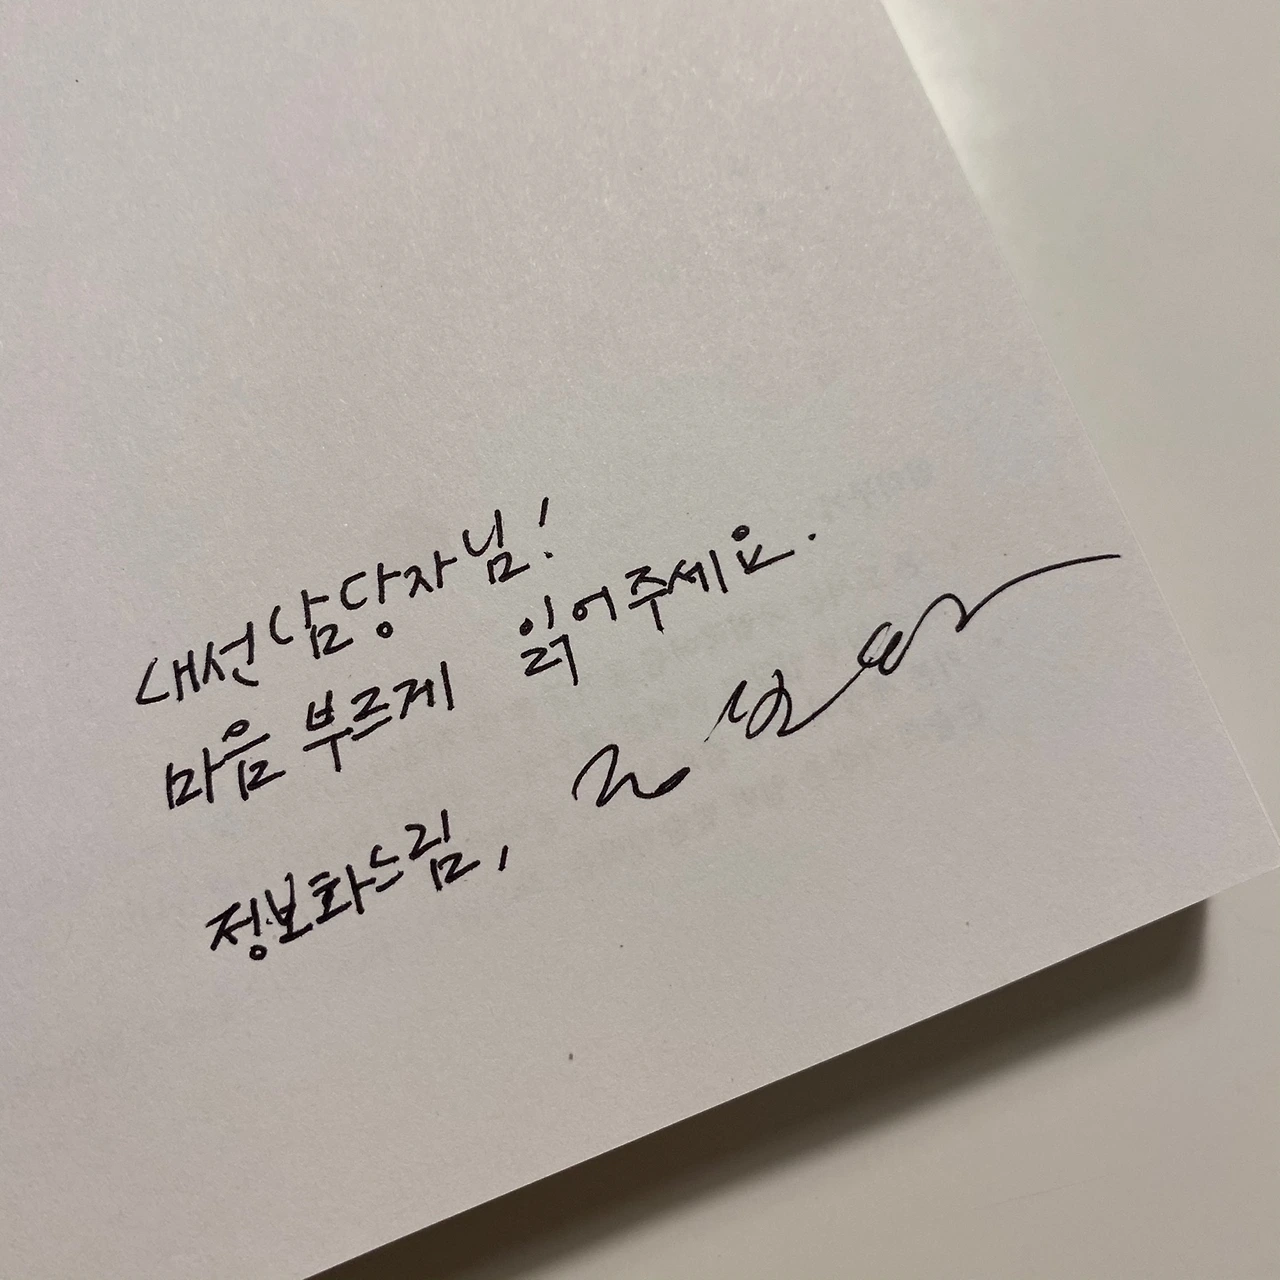 내선담당자님!
마음 부르게 읽어주세요.
정보화느림,